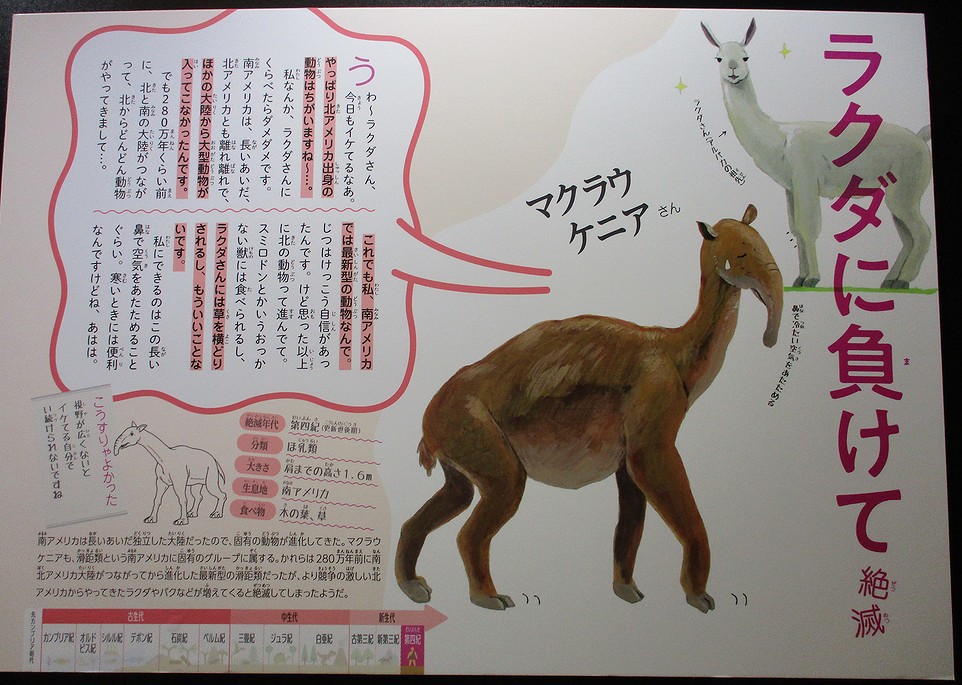 ラクダに負けて絶滅
マクラウ
ケニアさん
ラクダさん(アルパカの祖先)
鼻で冷たい空気をあたためる
うわ〜ラクダさん、
今日もイケてるなあ。
やっぱり北アメリカ出身の
動物はちがいますね〜…。
私なんか、ラクダさんに
くらべたらダメダメです。
南アメリカは、長いあいだ、
北アメリカとも離れ離れで、
ほかの大陸から大型動物が
入ってこなかったんです。
でも280万年くらい前
に、北と南の大陸がつなが
って、北からどんどん動物
がやってきまして…。
これでも私、南アメリカ
では最新型の動物なんで。
じつはけっこう自信があっ
たんです。けど思った以上
に北の動物って進んでて。
スミロドンとかいうおっか
ない獣には食べられるし、
ラクダさんには草を横どり
されるし、もういいことな
いです。
私にできるのはこの長い
鼻で空気をあたためること
ぐらい。寒いときには便利
なんですけどね、あはは。
こうすりゃよかった
視野が広くないと
イケてる自分で
い続けられないですね
絶滅年代 第四紀(更新世後期)
分類 ほ乳類
大きさ 肩までの高さ1.6m
生息地 南アメリカ
食べ物 木の葉、草
南アメリカは長いあいだ独立した大陸だったので、固有の動物が進化してきた。マクラウ
ケニアも、滑距類という南アメリカに固有のグループに属する。かれらは280万年前に南
北アメリカ大陸がつながってから進化した最新型の滑距類だったが、より競争の激しい北
アメリカからやってきたラクダやバクなどが増えてくると絶滅してしまったようだ。
先カンブリア時代
古生代 中生代 新生代
カンブリア紀 オルドビス紀 シルル紀 デボン紀 石炭紀 ペルム紀 三畳紀 ジュラ紀 白亜紀 古第三紀 新第三紀 第四紀